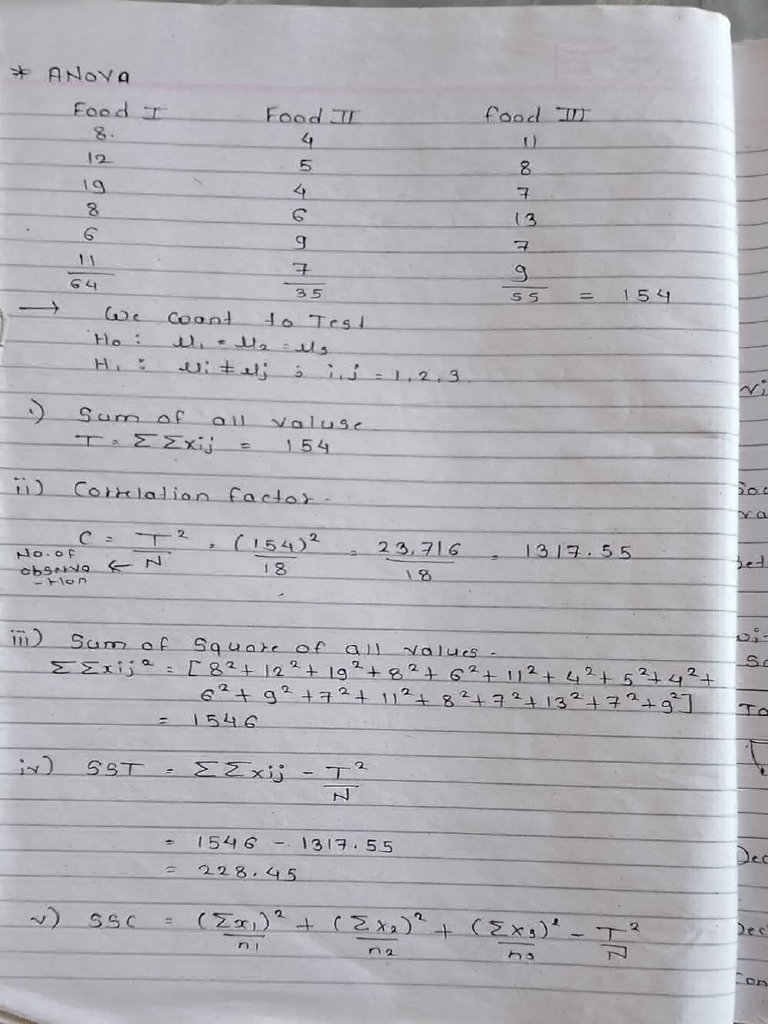 * ANOVA
Food I Food II food III
8. 4 11
12 5 8
19 4 7
8 6 13
6 9 7
11 7 9
64 35 55 = 154
→ We want to Test
H₀ : μ₁ = μ₂ = μ₃
H₁ : μi ≠ μj ; i,j = 1,2,3.
i) Sum of all valuse
T = ΣΣxij = 154
ii) Correlation factor.
C = T²/N = (154)²/18 = 23,716/18 = 1317.55
No. of observa-tion ←
iii) Sum of Square of all values.
ΣΣxij² = [8²+12²+19²+8²+6²+11²+4²+5²+4²+
6²+9²+7²+11²+8²+7²+13²+7²+9²]
= 1546
iv) SST = ΣΣxij - T²/N
= 1546 - 1317.55
= 228.45
v) SSC = (Σx₁)²/n₁ + (Σx₂)²/n₂ + (Σx₃)²/n₃ - T²/N